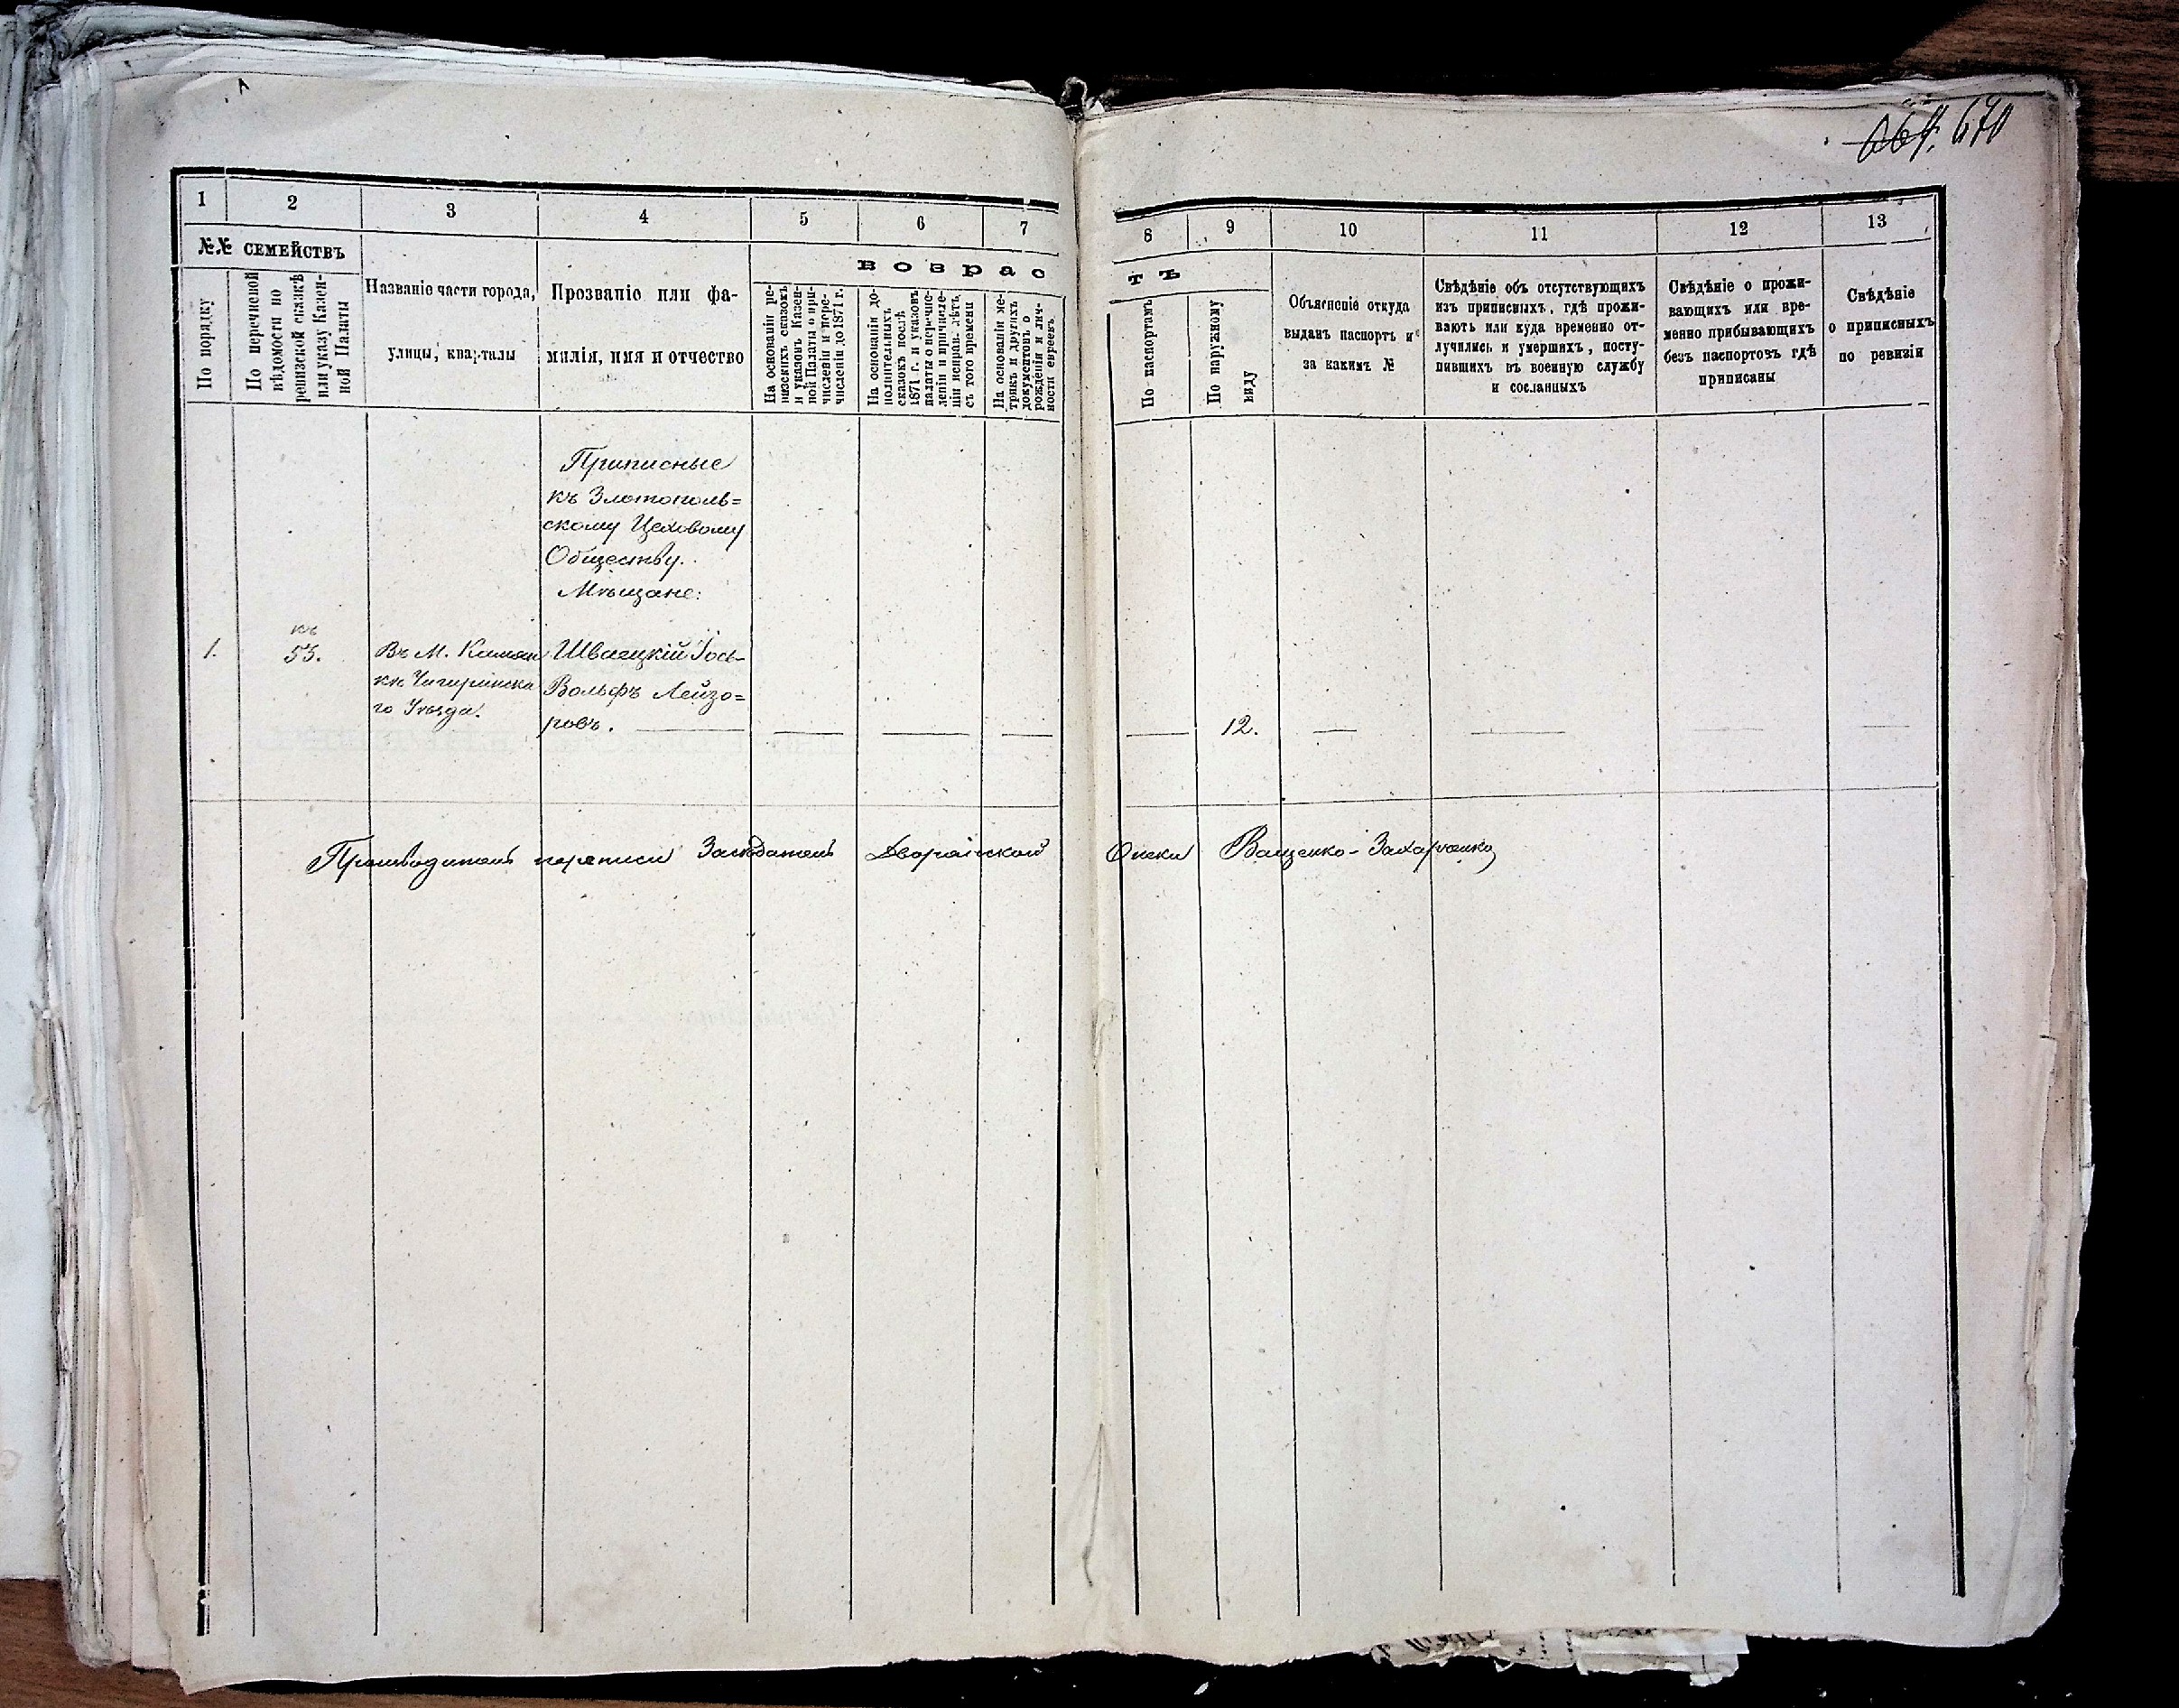 669. 670
1
2
3
4
5
6
7
8
9
10
11
12
13
№№ СЕМЕЙСТВЪ
По порядку
По перечневой
вѣдомости по
ревизской сказкѣ
или указу Казен-
ной Палаты
Названіе части города,
улицы, кварталы
Прозваніе или фа-
милія, имя и отчество
возрас
На основаніи ре-
визскихъ сказокъ
и указовъ Казен-
ной Палаты о при-
численіи и пере-
численіи до 1871 г.
На основаніи до-
полнительныхъ
сказокъ послѣ
1871 г. и указовъ
палаты о перечис-
леніи и причисле-
ніи исправ. лѣтъ
съ того времени
На основаніи ме-
трикъ и другихъ
документовъ о
рожденіи и лич-
ности евреевъ
тъ
По паспортамъ
По наружному
виду
Объясненіе откуда
выданъ паспортъ и
за какимъ №
Свѣдѣніе объ отсутствующихъ
изъ приписныхъ, гдѣ прожи-
ваютъ или куда временно от-
лучились и умершихъ, посту-
пившихъ въ военную службу
и сосланныхъ
Свѣдѣніе о прожи-
вающихъ или вре-
менно прибывающихъ
безъ паспортовъ гдѣ
приписаны
Свѣдѣніе
о приписныхъ
по ревизіи
Приписные
къ Златополь=
скому Цеховому
Обществу.
Мѣщане:
1.
къ
53.
Въ М. Камен
кѣ Чигиринска
го Уѣзда.
Швацкій Іось-
Вольфъ Лейзо=
ровъ.
12.
Производитель переписи Засѣдатель Дворянской Опеки Ващенко-Захарченко